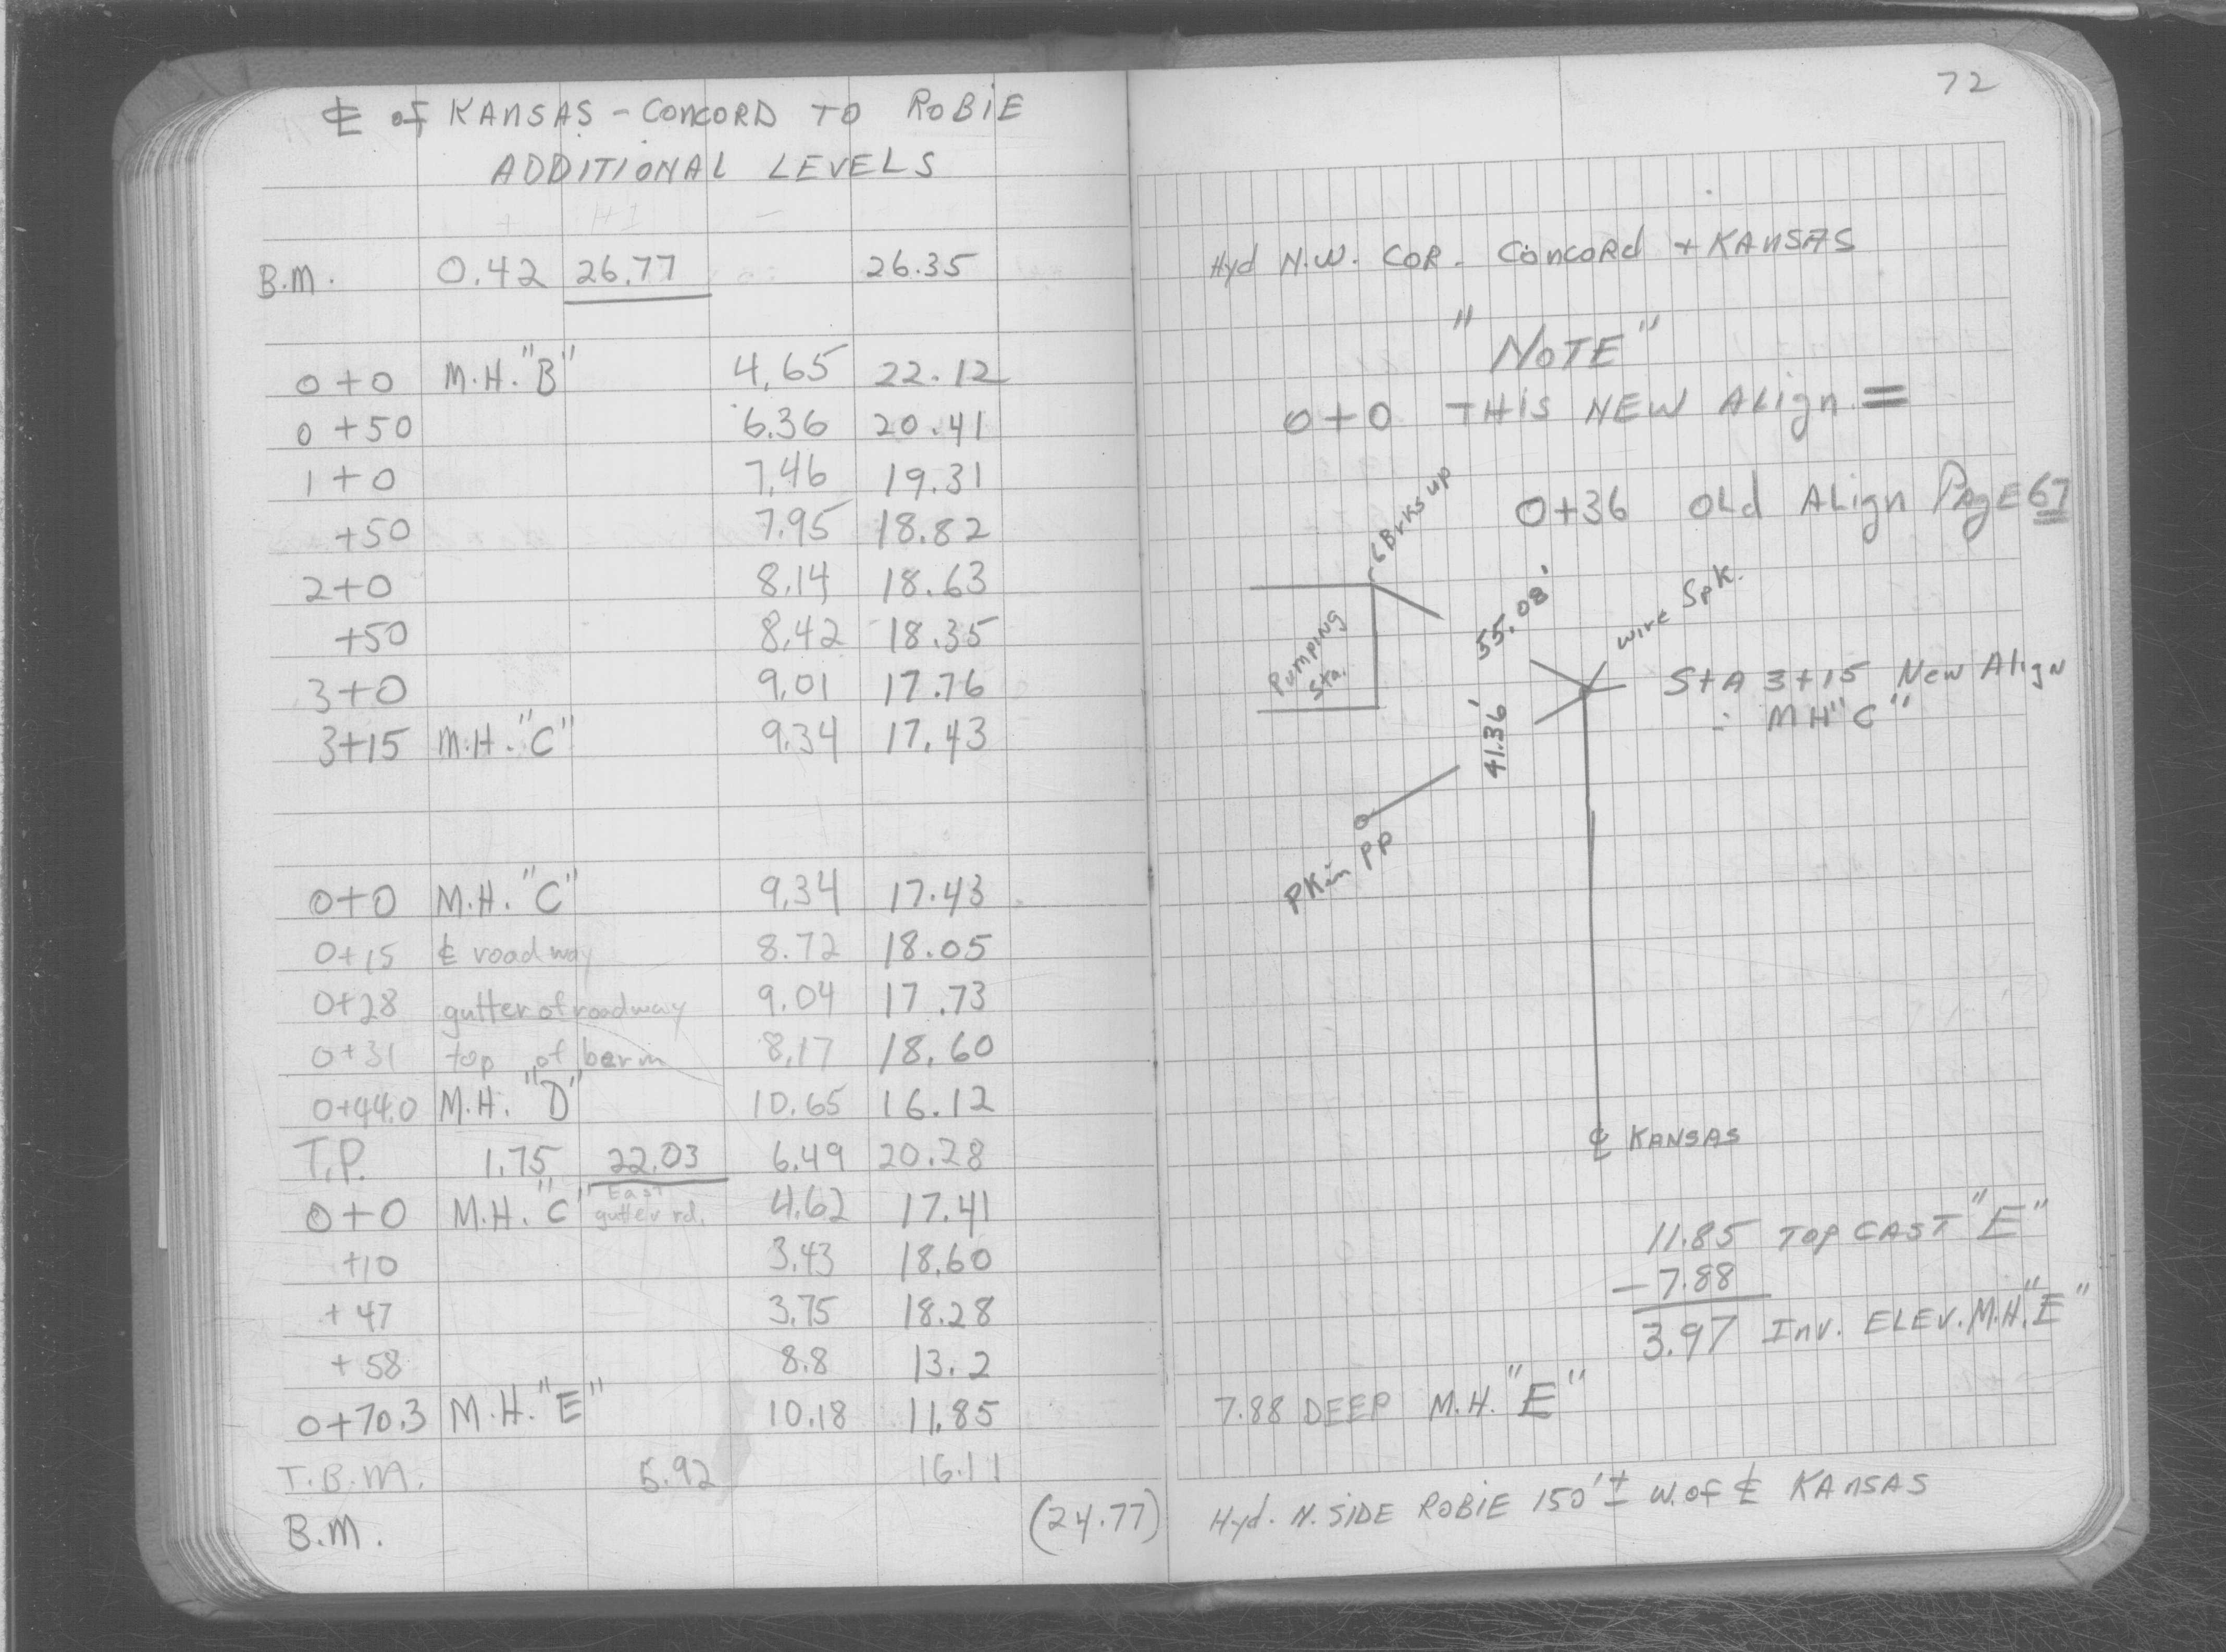 ℄ of KANSAS - CONCORD TO ROBIE
ADDITIONAL LEVELS
+ HI -
B.M. 0.42 26.77 26.35
0+0 M.H. "B" 4.65 22.12
0+50 6.36 20.41
1+0 7.46 19.31
+50 7.95 18.82
2+0 8.14 18.63
+50 8.42 18.35
3+0 9.01 17.76
3+15 M.H. "C" 9.34 17.43
0+0 M.H. "C" 9.34 17.43
0+15 ℄ roadway 8.72 18.05
0+28 gutter of roadway 9.04 17.73
0+31 top of berm 8.17 18.60
0+44.0 M.H. "D" 10.65 16.12
T.P. 1.75 22.03 6.49 20.28
0+0 M.H. "C" East gutter rd. 4.62 17.41
+10 3.43 18.60
+47 3.75 18.28
+58 8.8 13.2
0+70.3 M.H. "E" 10.18 11.85
T.B.M. 5.92 16.11
B.M. (24.77)
72
Hyd N.W. COR. CONCORD + KANSAS
"NOTE"
0+0 THIS NEW ALign =
0+36 OLd ALign PAgE 67
6 Brks up
Pumping
Sta.
55.08'
wire Spk.
StA 3+15 New Align
MH "C"
41.36'
PK in PP
℄ KANSAS
11.85 TOP CAST "E"
- 7.88
3.97 Inv. ELEV. M.H. "E"
7.88 DEEP M.H. "E"
Hyd. N. SIDE ROBIE 150'± W. of ℄ KANSAS